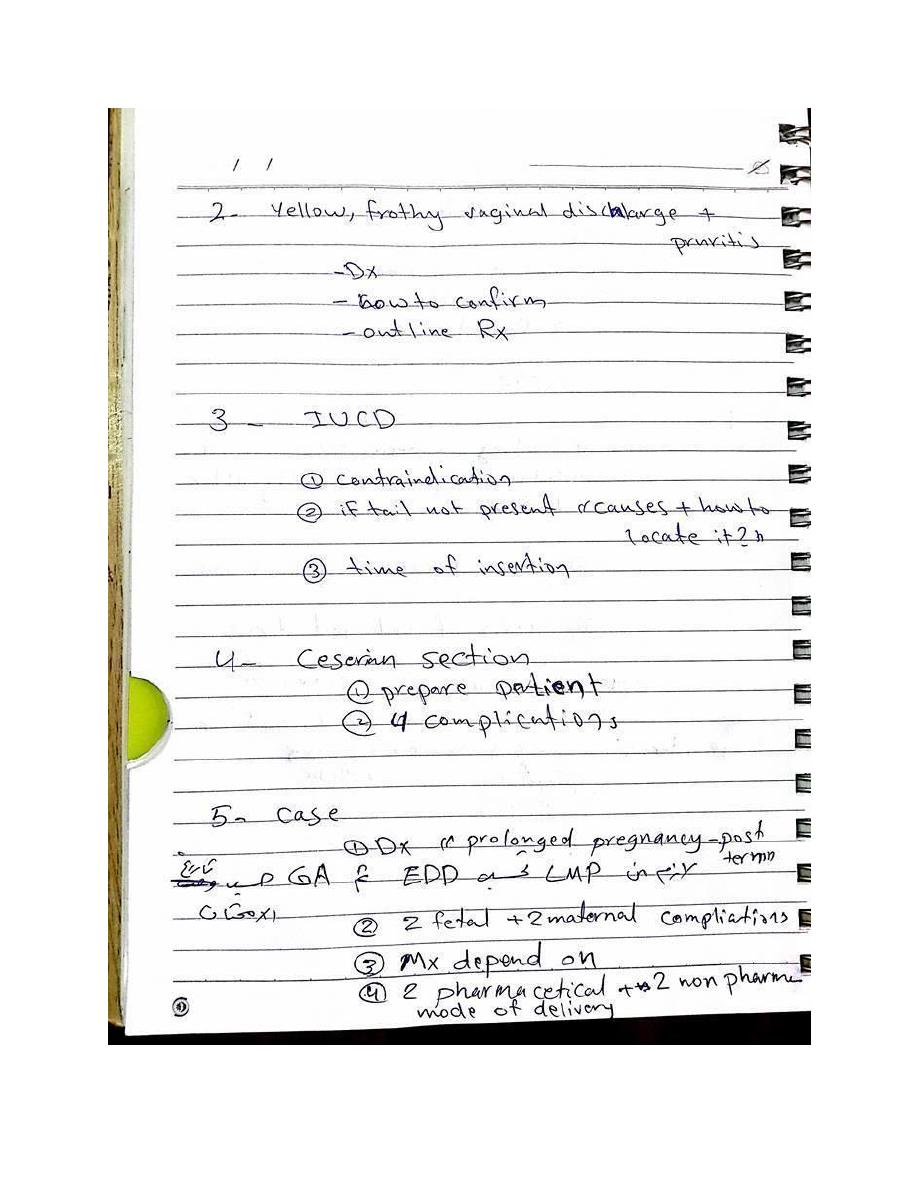 / /
2- Yellow, frothy vaginal discharge +
pruritis
-Dx
- how to confirm
- outline Rx
3 - IUCD
① contraindication
② if tail not present " causes + how to
locate it? "
③ time of insertion
4- Ceserian section
① prepare patient
② 4 complications
5- case
① Dx " prolonged pregnancy - post
termn
GA EDD LMP
② 2 fetal + 2 maternal compliations
③ Mx depend on
④ 2 pharmacetical + 2 non pharma
mode of delivory